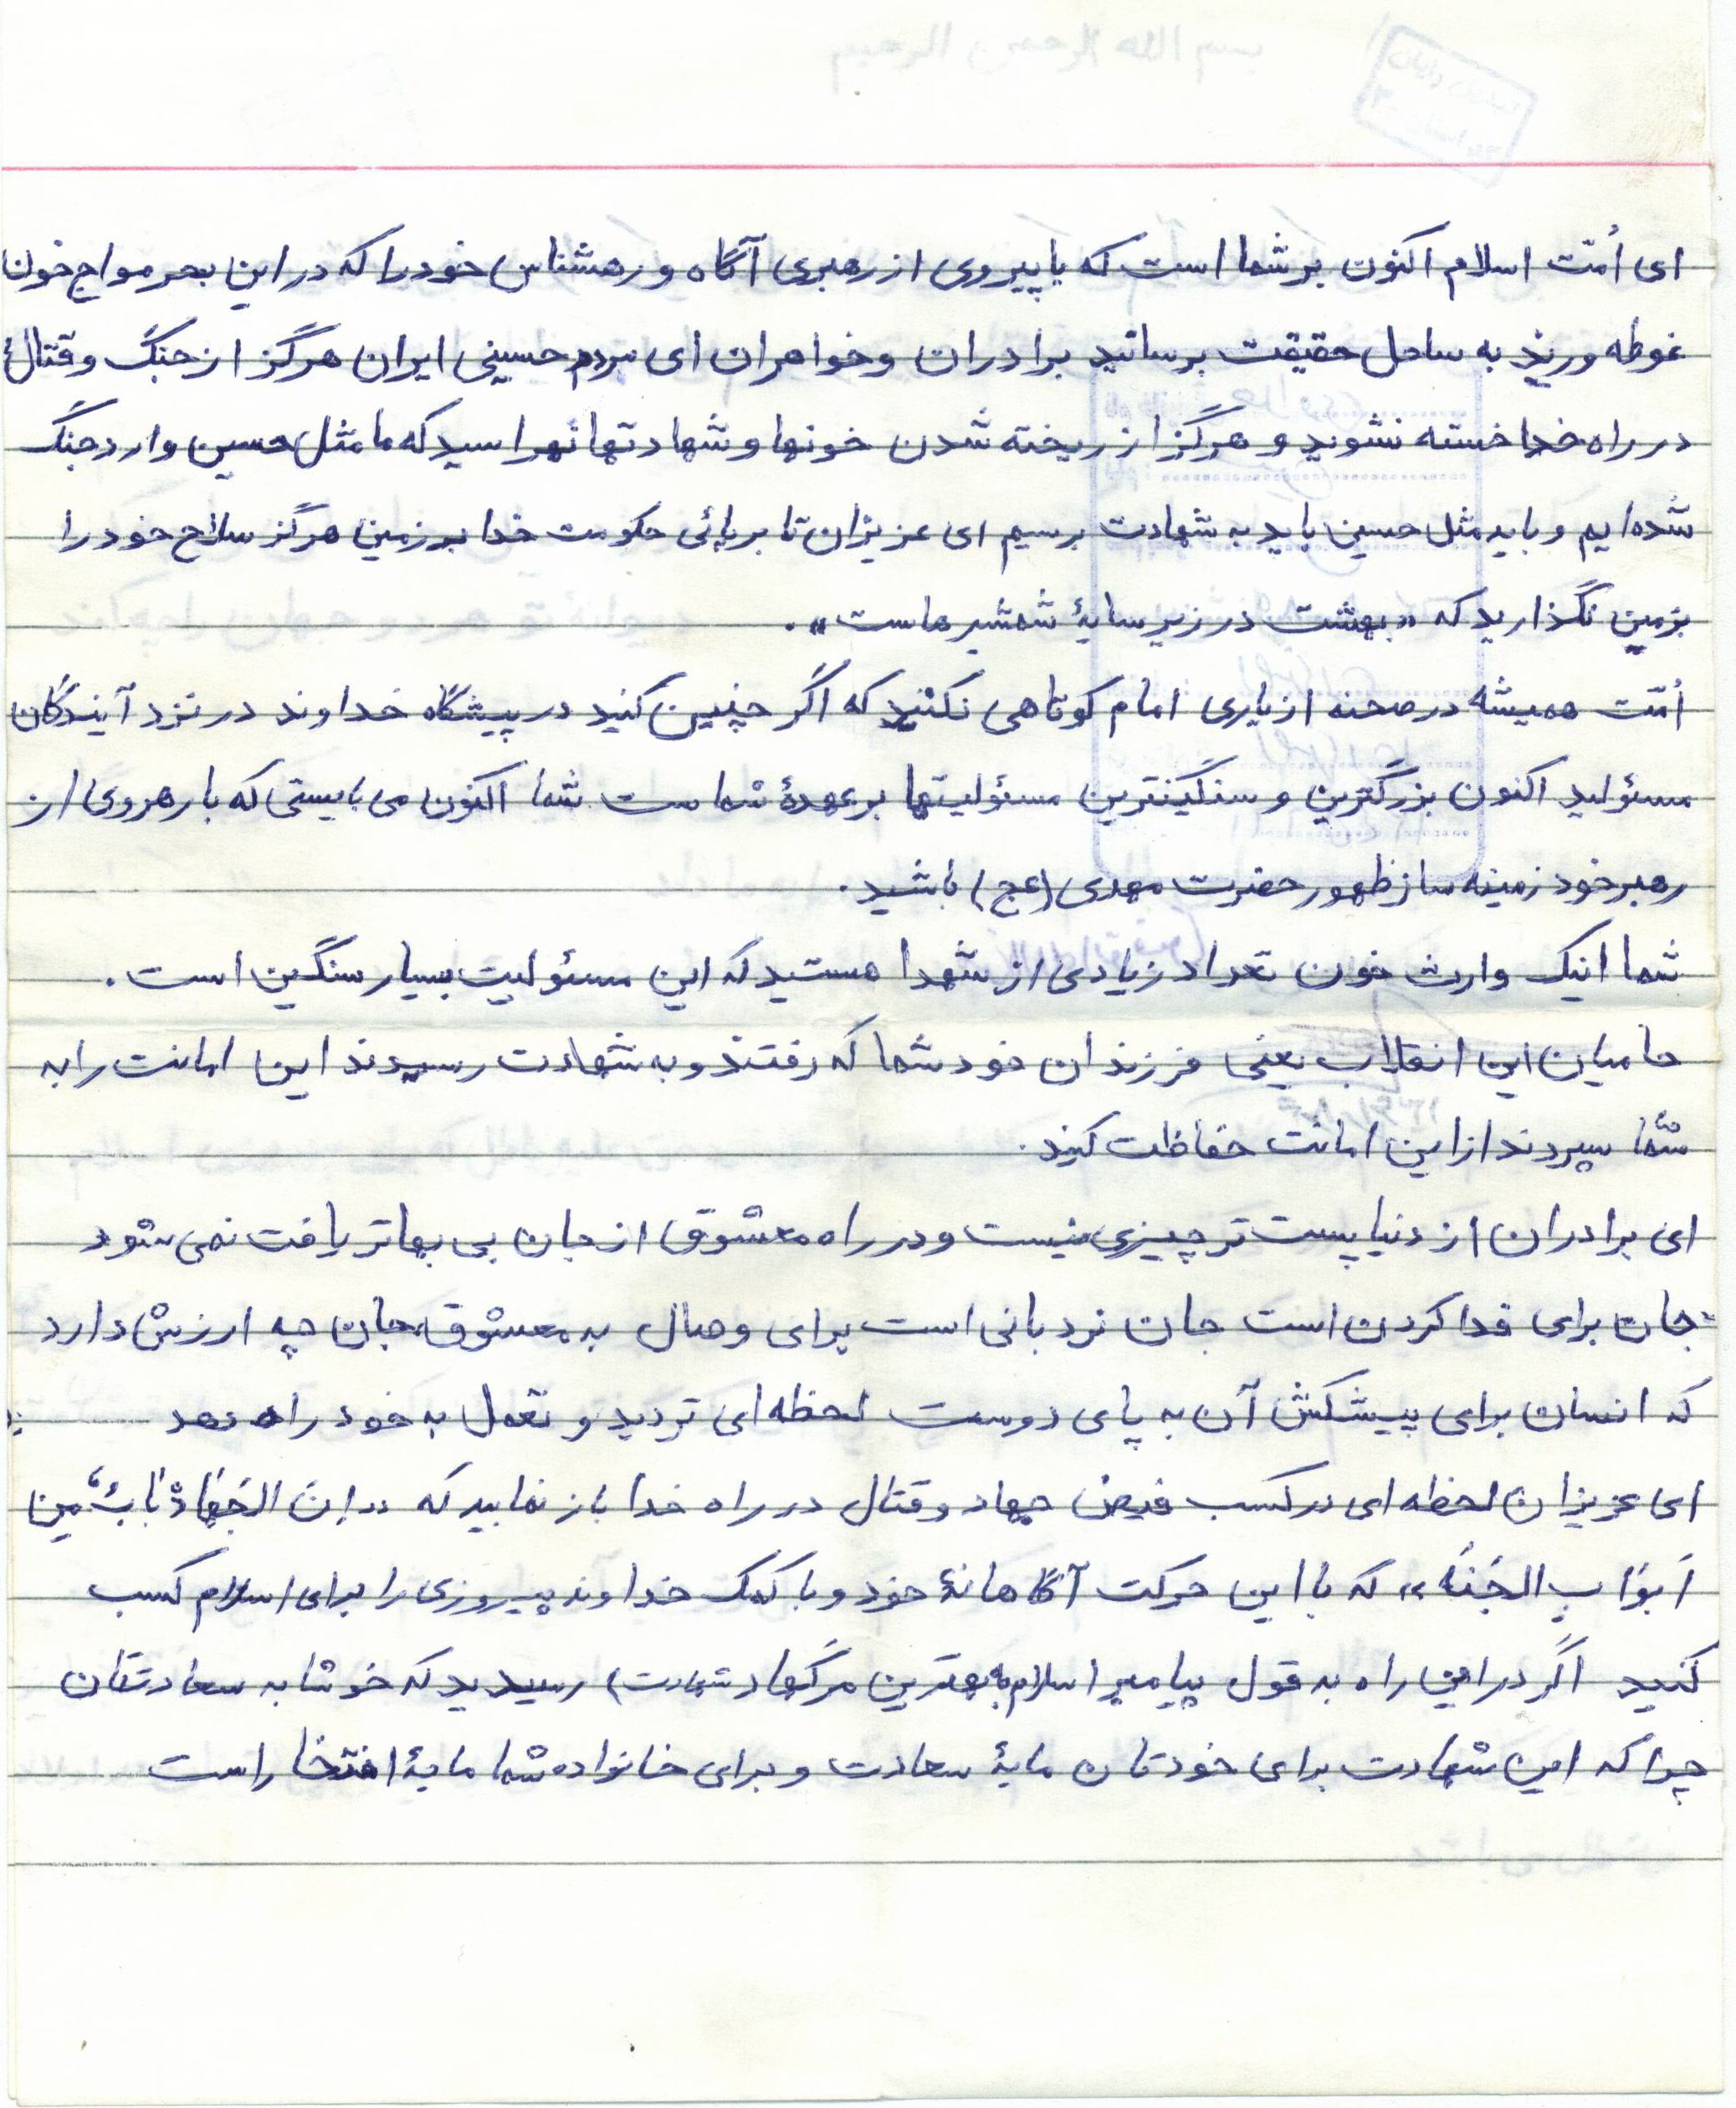 ای اُمّت اسلام اکنون بر شما است که با پیروی از رهبری آگاه و رهشناس خود را که در این بحر مواج خون
غوطه ورید به ساحل حقیقت برسانید برادران و خواهران ای مردم حسینی ایران هرگز از جنگ و قتال
در راه خدا خسته نشوید و هرگز از ریخته شدن خونها و شهادتها نهراسید که ما مثل حسین وارد جنگ
شده‌ایم و باید مثل حسین باید به شهادت برسیم ای عزیزان تا برپائی حکومت خدا بر زمین هرگز سلاح خود را
بزمین نگذارید که «بهشت در زیر سایهٔ شمشیرهاست».
اُمّت همیشه در صحنه از یاری امام کوتاهی نکنید که اگر چنین کنید در پیشگاه خداوند در نزد آیندگان
مسئولید اکنون بزرگترین و سنگینترین مسئولیتها بر عهدهٔ شماست شما اکنون می بایستی که با رهروی از
رهبر خود زمینه ساز ظهور حضرت مهدی (عج) باشید.
شما اینک وارث خون تعداد زیادی از شهدا هستید که این مسئولیت بسیار سنگین است.
حامیان این انقلاب یعنی فرزندان خود شما که رفتند و به شهادت رسیدند این امانت را به
شما سپردند از این امانت حفاظت کنید.
ای برادران از دنیا پست تر چیزی نیست و در راه معشوق از جان بی بهاتر یافت نمی شود
جان برای فدا کردن است جان نردبانی است برای وصال به معشوق جان چه ارزش دارد
که انسان برای پیشکش آن به پای دوست لحظه‌ای تردید و تعمل به خود راه دهد
ای عزیزان لحظه‌ای در کسب فیض جهاد و قتال در راه خدا باز نمایید که «اِنَ الجَهادْ بابٌ مِن
اَبوَابِ الجَنَه» که با این حرکت آگاهانهٔ خود و با کمک خداوند پیروزی را برای اسلام کسب
کنید اگر در این راه به قول پیامبر اسلام به بهترین مرگها (شهادت) رسیدید که خوشا به سعادتتان
چرا که این شهادت برای خودتان مایهٔ سعادت و برای خانواده شما مایهٔ افتخار است